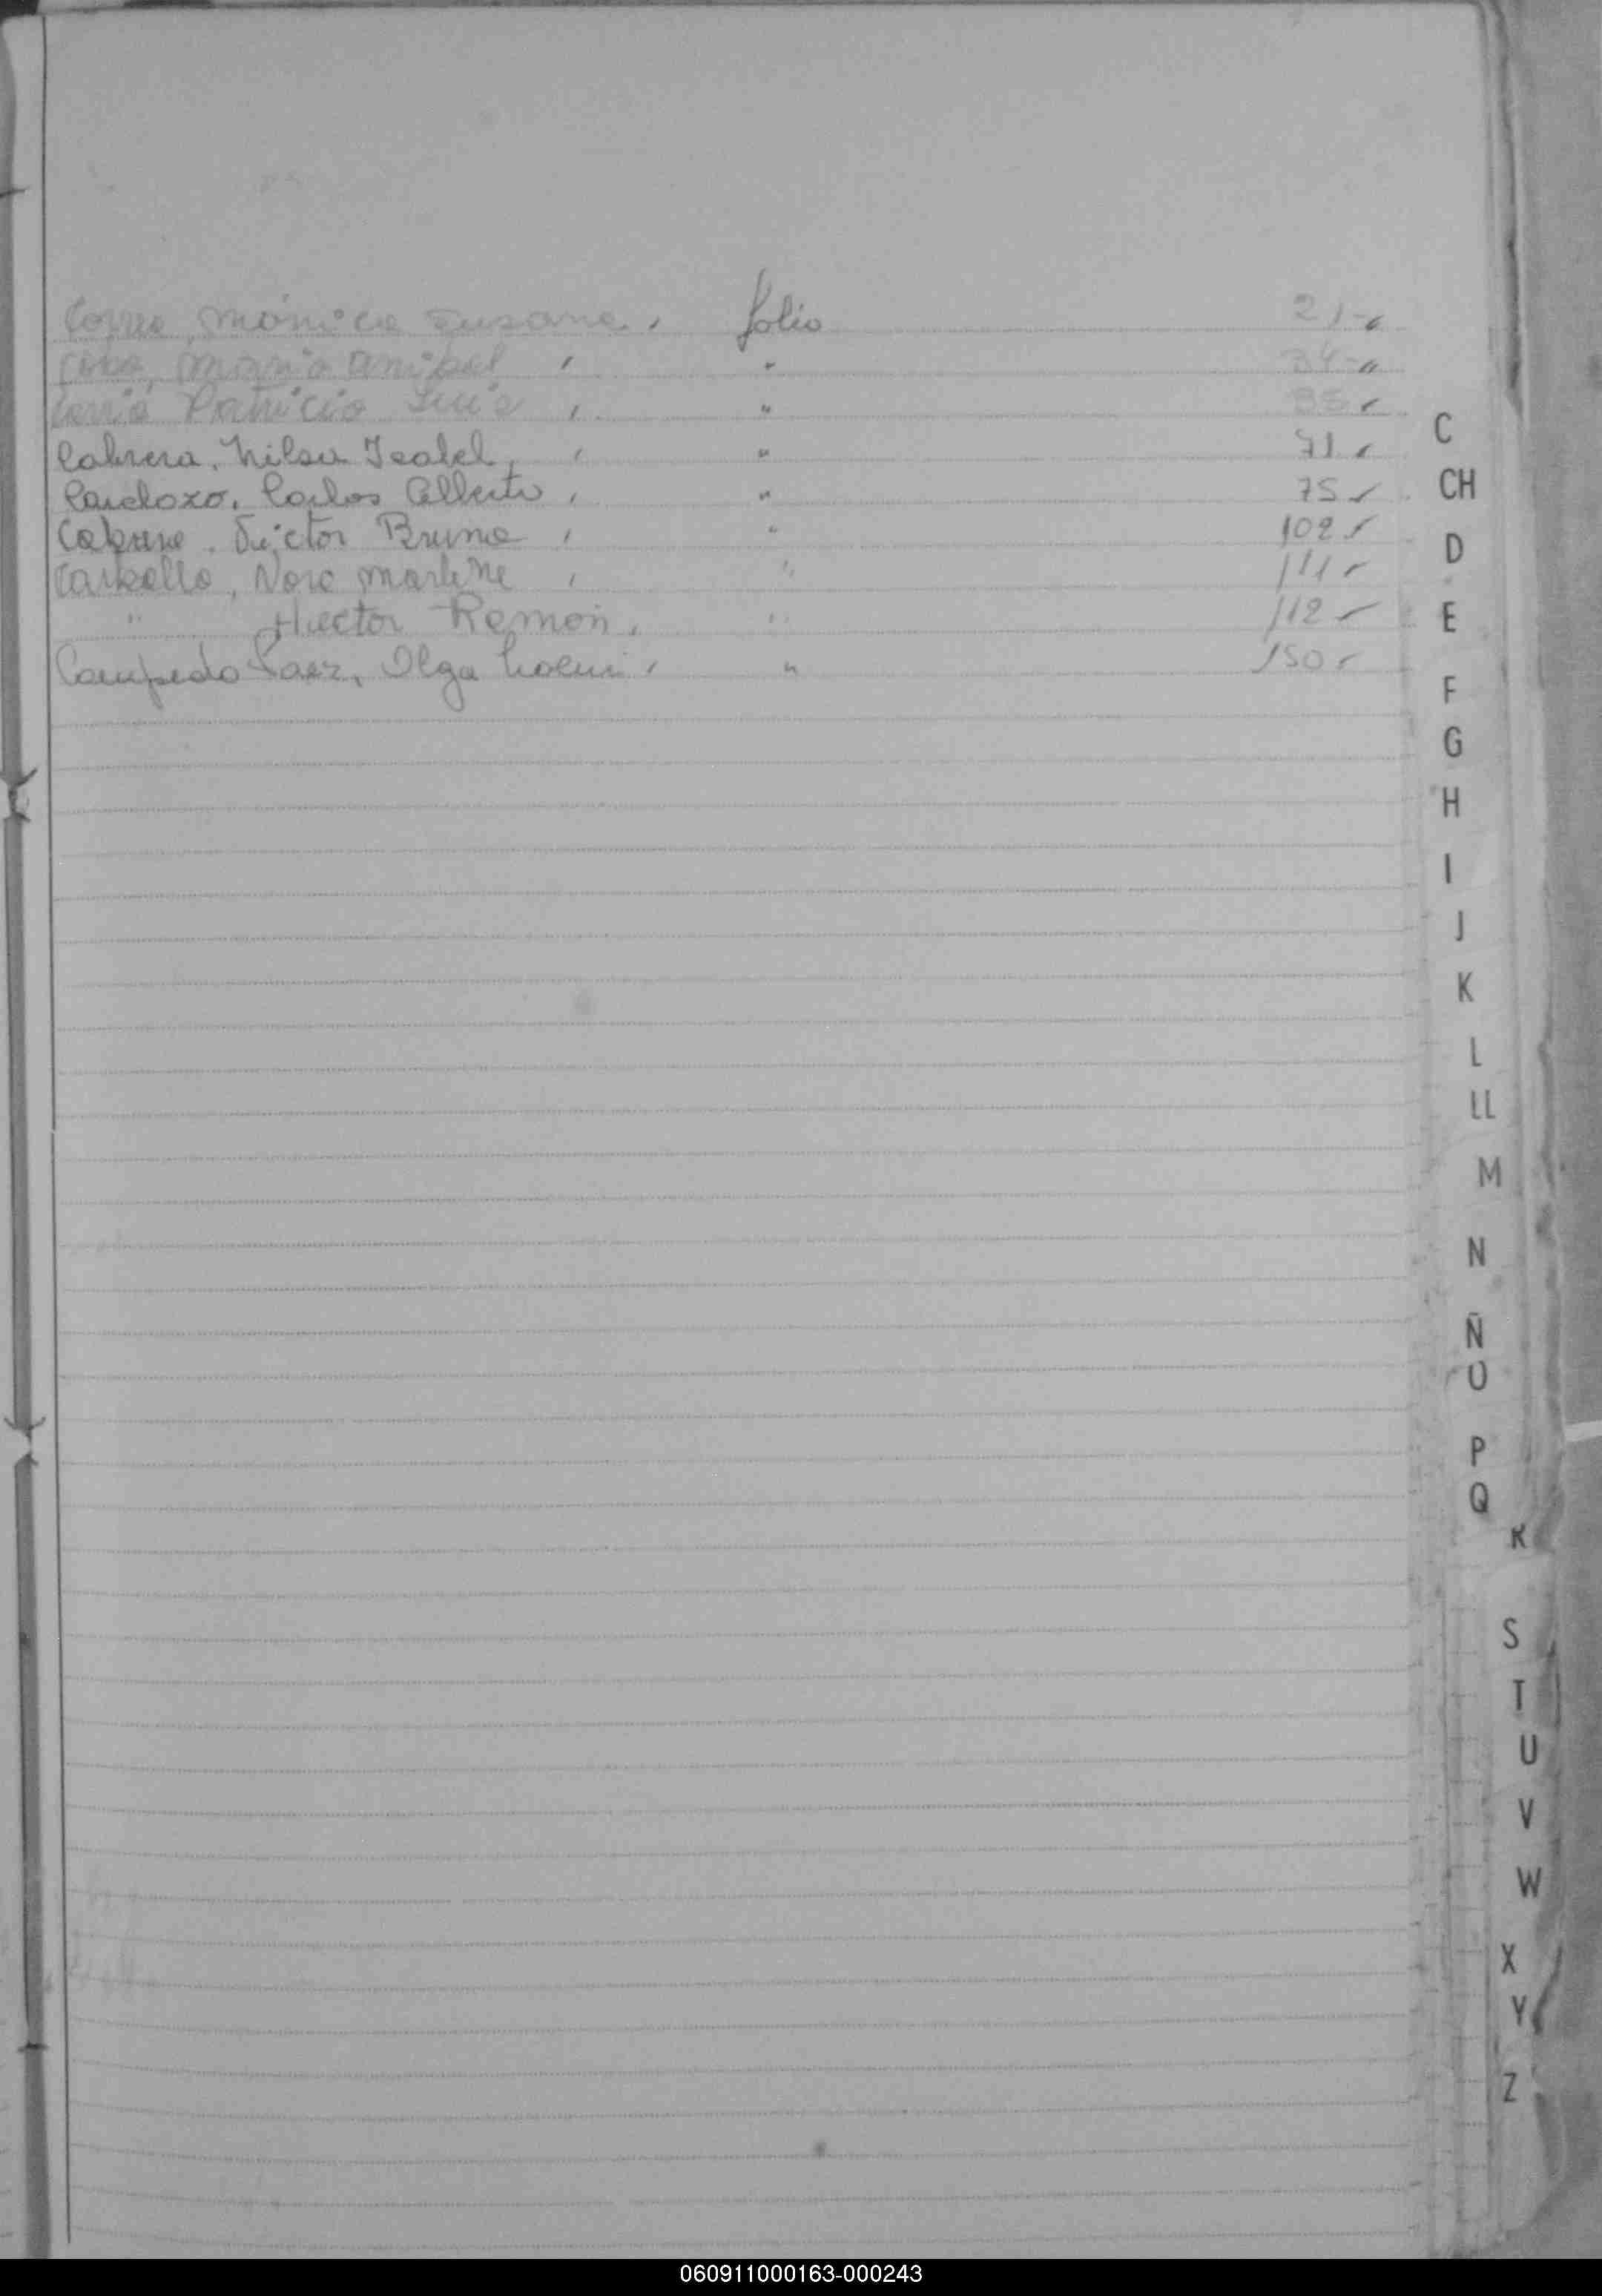 Correa, Mónica Susana, folio 21-"
Coba, Mario Anibal, " 34-"
Patricio Luis, " 35 "
Cabrera, Nilsa Isabel, " 71 "
Cardozo, Carlos Alberto, " 75 "
Cabrera, Victor Bruno, " 102 "
Carballo, Nora Marlene, " 111 "
" Hector Ramón, " 112 "
Campedo Saez, Olga Noemi, " 150 "
C
CH
D
E
F
G
H
I
J
K
L
LL
M
N
Ñ
O
P
Q
R
S
T
U
V
W
X
Y
Z
060911000163-000243